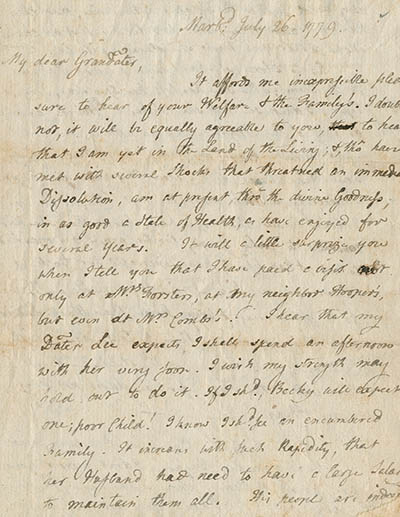 Marb: July 26. 1779.
My dear Grandater,
It affords me inexpressible plea
sure to hear of your Welfare & the Family's. I doubt
not, it will be equally agreeable to you, to hear
that I am yet in the Land of the Living; & tho have
met with several Shocks that threatned an immed
Dissolution, am at present, thro the divine Goodness,
in as good a State of Health, as have enjoyed for
several years. It will a little surprize you
when I tell you that I have paid a visit not
only at Mrs at my neighbor Hooper's,
but even at Mr Combs's! I hear that my
Dater Lee expects I shall spend an afternoon
with her very soon. I wish my strength may
hold out to do it. If I shd, Becky will expect
one; poor Child! I know I shd an encumbered
Family. It increases with such Rapidity, that
her Husband had need to have a large Salar
to maintain them all. His people are indeed